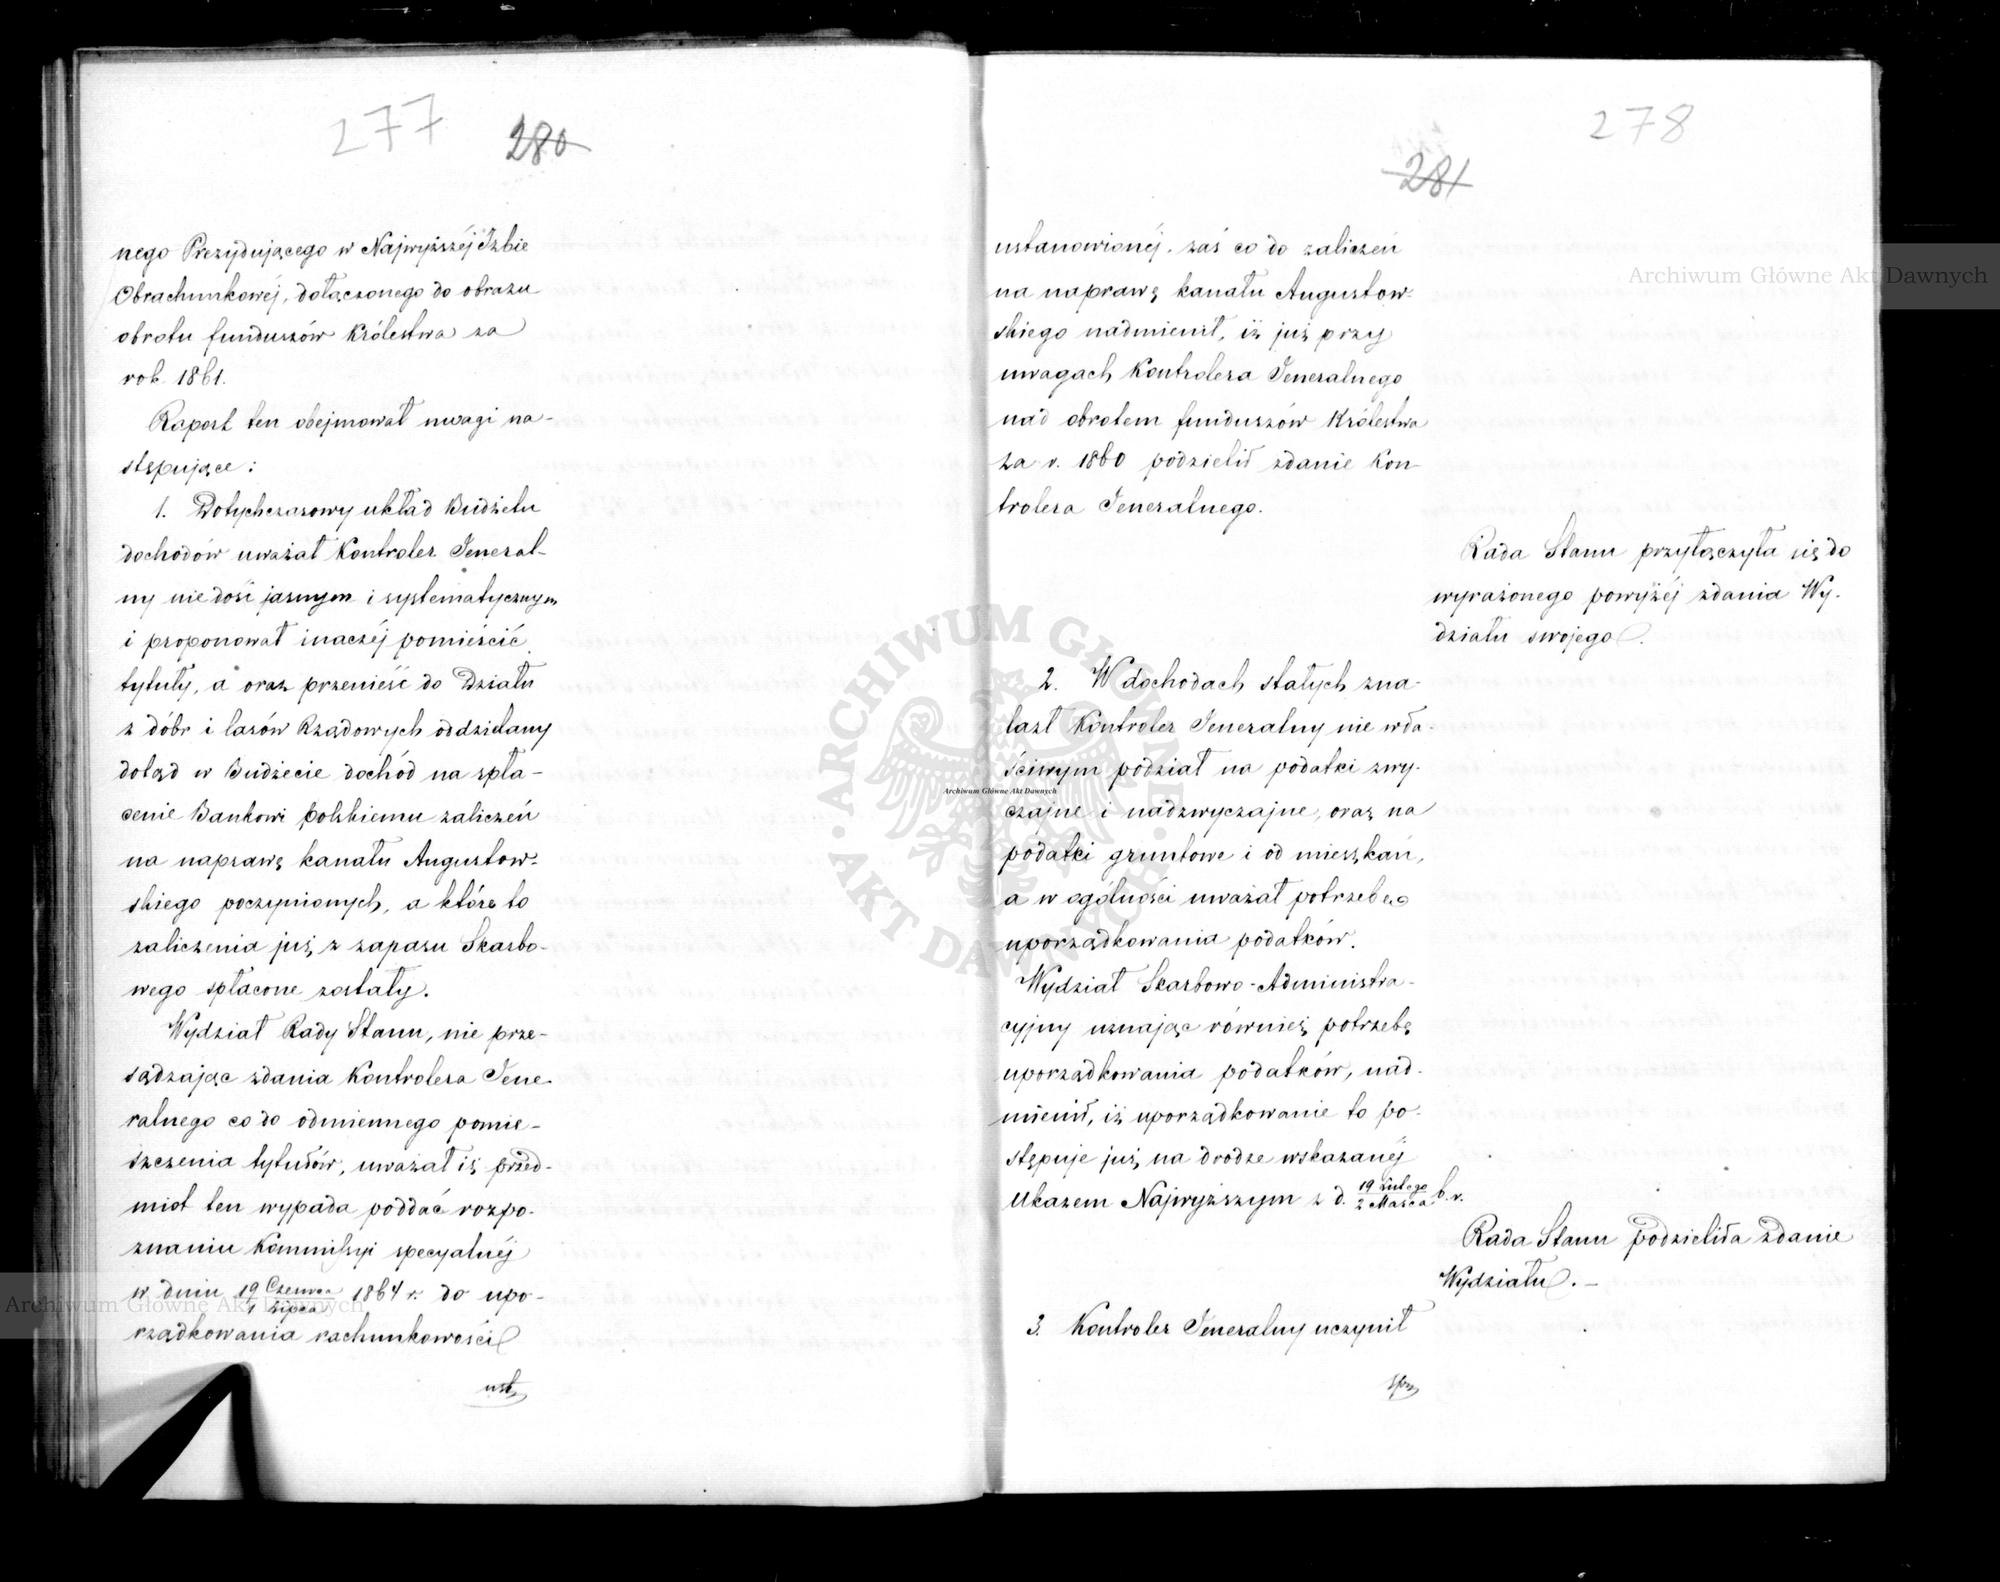 277 280
nego Prezydującego w Najwyższéj Izbie
Obrachunkowéj, dołączonego do obrazu
obrotu funduszów Królestwa za
rok 1861.
Raport ten obejmował uwagi na-
stępujące:
1. Dotychczasowy układ Budżetu
dochodów uważał Kontroler Jeneral-
ny nie dość jasnym i systematycznym
i proponował inaczéj pomieścić
tytuły, a oraz przenieść do Działu
z dóbr i lasów Rządowych oddzielany
dotąd w Budżecie dochód na spła-
cenie Bankowi polskiemu zaliczeń
na naprawę kanału Augustow-
skiego poczynionych, a które to
zaliczenia już z zapasu Skarbo-
wego spłacone zostały.
Wydział Rady Stanu, nie prze-
sądzając zdania Kontrolera Jene-
ralnego co do odmiennego pomie-
szczenia tytułów, uważał iż przed-
miot ten wypada poddać rozpo-
znaniu Kommissyi specyalnéj
w dniu 19 Czerwca / 1 Lipca 1864 r. do upo-
rządkowania rachunkowości
ust.
278
281
ustanowionéj. zaś co do zaliczeń
na naprawę kanału Augustow-
skiego nadmienił, iż już przy
uwagach Kontrolera Jeneralnego
nad obrotem funduszów Królestwa
za r. 1860 podzielił zdanie Kon-
trolera Jeneralnego.
Rada Stanu przyłączyła się do
wyrażonego powyżéj zdania Wy-
działu swojego.
2. W dochodach stałych zna-
lazł Kontroler Jeneralny nie wła-
ściwym podział na podatki zwy-
czajne i nadzwyczajne, oraz na
podatki gruntowe i od mieszkań,
a w ogólności uważał potrzebę
uporządkowania podatków.
Wydział Skarbowo-Administra-
cyjny uznając również potrzebę
uporządkowania podatków, nad-
mienił, iż uporządkowanie to po-
stępuje już na drodze wskazanéj
Ukazem Najwyższym z d. 19 Lutego / 2 Marca b. r.
Rada Stanu podzieliła zdanie
Wydziału. —
3. Kontroler Jeneralny uczynił
spo
Archiwum Główne Akt Dawnych
Archiwum Główne Akt Dawnych
Archiwum Główne Akt Dawnych
ARCHIWUM GŁÓWNE · AKT DAWNYCH ·